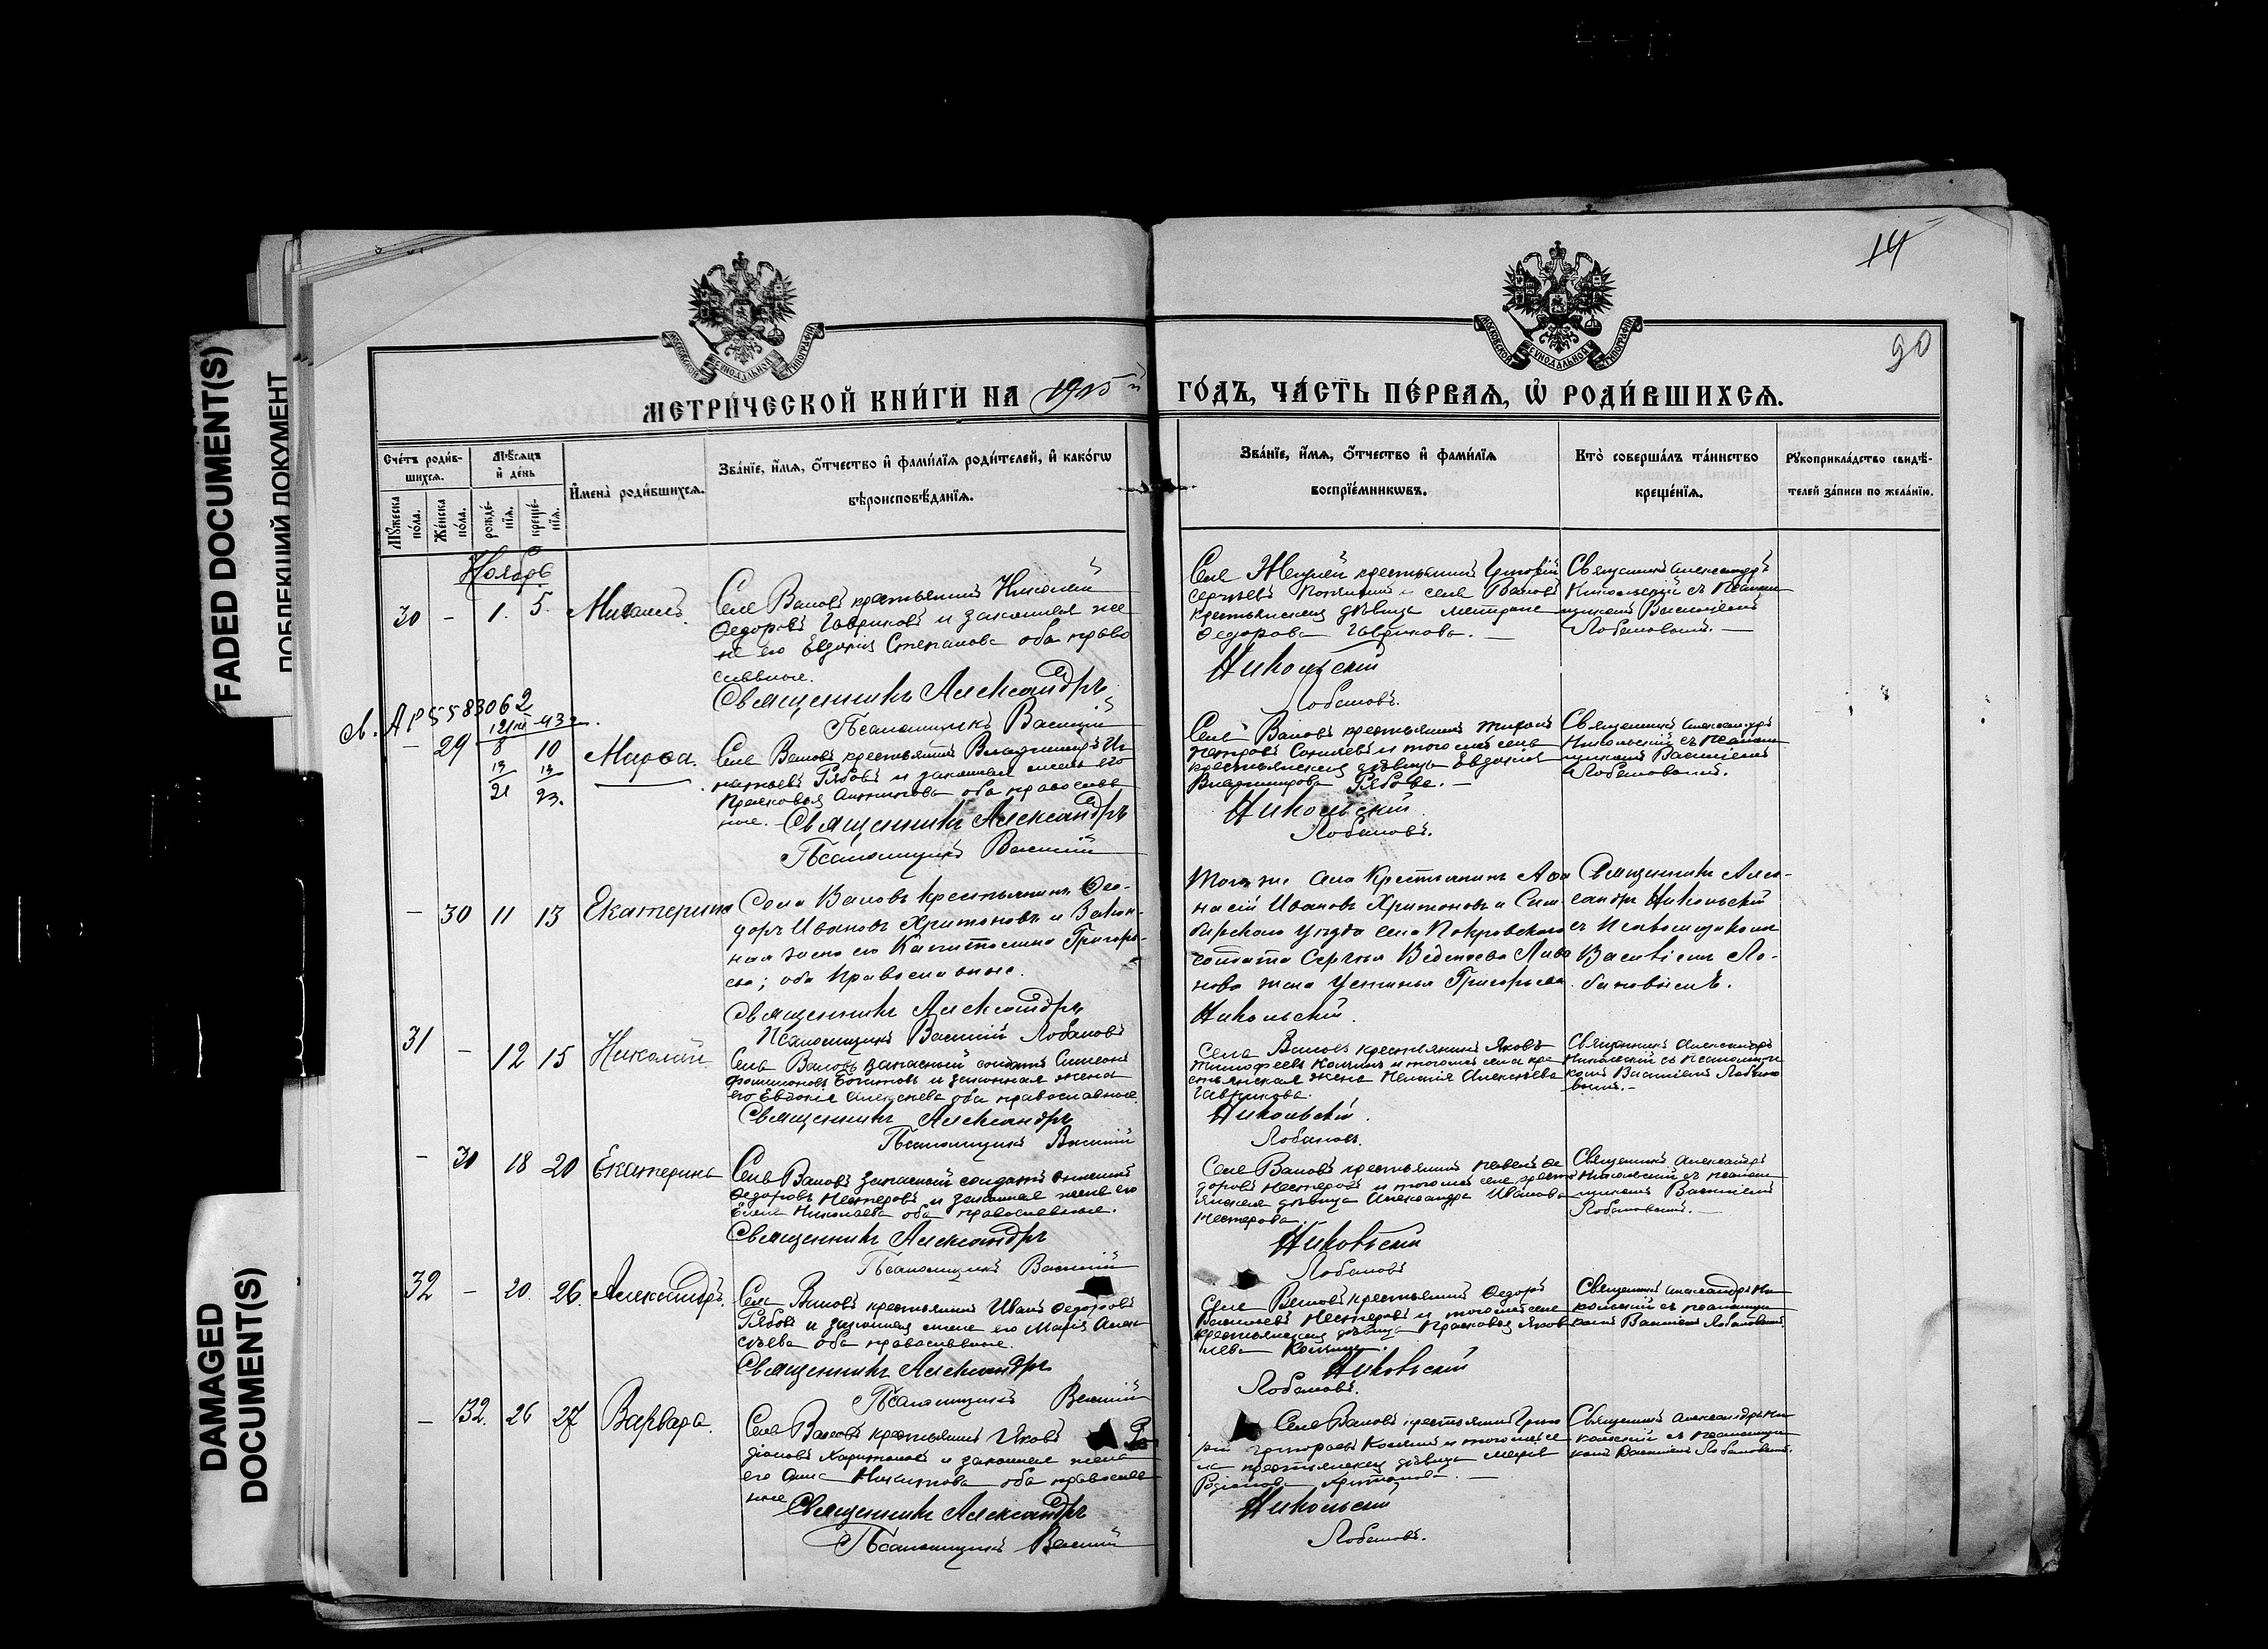 FADED DOCUMENT(S)
ПОБЛЕКШИЙ ДОКУМЕНТ
DAMAGED
DOCUMENT(S)
14
90
МОСКОВСКОЙ СѴНОДАЛЬНОЙ ТИПОГРАФІИ
МОСКОВСКОЙ СѴНОДАЛЬНОЙ ТИПОГРАФІИ
МЕТРИ́ЧЕСКОЙ КНИ́ГИ НА 1915 й ГО́ДЪ, ЧА́СТЬ ПЕ́РВАѦ, Ѡ҆ РОДИ́ВШИХСѦ.
Сче́тъ роди́в-
шихсѧ.
Мꙋ́жеска по́ла.
Же́нска по́ла.
Мѣ́сѧцъ
и҆ де́нь
рожде́-
нїѧ.
креще́-
нїѧ.
И҆мена̀ роди́вшихсѧ.
Зва́нїе, и҆́мѧ, ѻ҆́тчество и҆ фами́лїѧ роди́телей, и҆ како́гѡ
вѣроисповѣ́данїѧ.
Зва́нїе, и҆́мѧ, ѻ҆́тчество и҆ фами́лїѧ
воспрїе́мникѡвъ.
Кто̀ соверша́лъ та́инство
креще́нїѧ.
Рꙋкоприкла́дство свидѣ́-
телей за́писи по жела́нїю.
Ноябрь
30 - 1. 5. Михаилъ.
Села Валовъ крестьянинъ Николай
Ѳедоровъ Гавриковъ и законная же
на его Евдокія Степанова оба право
славные.
Священникъ Александръ
Псаломщикъ Василій
крестьянинъ
Сергѣевъ и села Валовъ
крестьянская дѣвица
Ѳедорова Гаврикова.
Никольскій
Лобановъ.
Священникъ Александръ
Никольскій съ псалом
щикомъ Василіемъ
Лобановымъ.
- 29 8 10 Марѳа.
13 13
21 23.
Села Валовъ крестьянинъ Владимиръ Иг
натьевъ Рябовъ и законная жена его
Прасковья оба православ
ные. Священникъ Александръ
Псаломщикъ Василій
Села Валовъ крестьянинъ
Петровъ и того же села
крестьянская дѣвица Евдокія
Владимирова Рябова.
Никольскій
Лобановъ.
Священникъ Александръ
Никольскій съ псалом
щикомъ Василіемъ
Лобановымъ.
- 30 11 13 Екатерина
Села Валовъ крестьянинъ Ѳео-
доръ Ивановъ Харитоновъ и закон-
ная жена его Капитолина Григорь-
ева; оба православные.
Священникъ Александръ
Псаломщикъ Василій Лобановъ
Того же села крестьянинъ Аѳа
насій Ивановъ Харитоновъ и Сим-
бирскаго уѣзда села Покровскаго
солдата Сергѣя
жена Устинья Григорьева.
Никольскій.
Священникъ Алек-
сандръ Никольскій
съ псаломщикомъ
Василіемъ Ло-
бановымъ.
31 - 12 15 Николай
Села Валовъ запасный солдатъ Симеонъ
и законная жена
его Евдокія Алексѣева оба православные.
Священникъ Александръ
Псаломщикъ Василій
Села Валовъ крестьянинъ Яковъ
Тимофеевъ и того же села кре
стьянская жена Алексѣева
Гаврикова.
Никольскій.
Лобановъ.
Священникъ Александръ
Никольскій съ псаломщи
комъ Василіемъ Лобано
вымъ.
- 31 18 20 Екатерина
Села Валовъ запасный солдатъ
Ѳедоровъ Нестеровъ и законная жена его
Елена Николаева оба православные.
Священникъ Александръ
Псаломщикъ Василій
Села Валовъ крестьянинъ Павелъ Ѳе
доровъ Нестеровъ и того же села кресть
янская дѣвица Александра Иванова
Нестерова.
Никольскій
Лобановъ
Священникъ Александръ
Никольскій съ псалом
щикомъ Василіемъ
Лобановымъ.
32 - 20. 26. Александръ.
Села Валовъ крестьянинъ Иванъ Ѳедоровъ
Рябовъ и законная жена его Марія Алек
сѣева оба православные.
Священникъ Александръ
Псаломщикъ Василій
Села Валовъ крестьянинъ Ѳедоръ
Васильевъ Нестеровъ и того же села
крестьянская дѣвица Прасковья Яков
лева
Никольскій
Лобановъ.
Священникъ Александръ Ни
кольскій съ псаломщи
комъ Василіемъ Лобановымъ.
- 32. 26 27 Варвара.
Села Валовъ крестьянинъ Яковъ Ро
діоновъ Харитоновъ и законная жена
его Анна Никитова оба православ
ные
Священникъ Александръ
Псаломщикъ Василій
Села Валовъ крестьянинъ Григо
рій Григорьевъ и того же се
ла крестьянская дѣвица Марія
Родіонова Харитонова.
Никольскій
Лобановъ.
Священникъ Александръ Ни
кольскій съ псаломщи
комъ Василіемъ Лобановымъ.